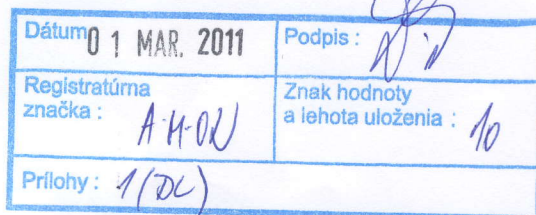 Dátum 01 MAR. 2011
Podpis :
Registratúrna
značka : A-M-ON
Znak hodnoty
a lehota uloženia : 10
Prílohy : 1 (DL)